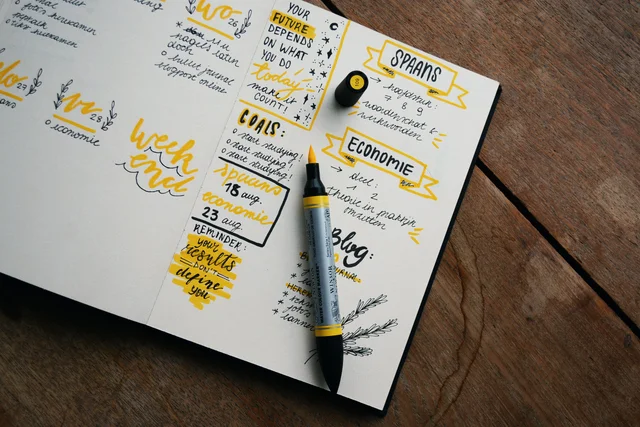 wo 26
nagels laten
doen
o bullet journal
blogpost online
29
vr 28
o economie
week
end
YOUR
FUTURE
DEPENDS
ON WHAT
YOU DO
today
make it
COUNT!
GOALS:
o start studying!
o start studying!
o start studying!
spaans
18 aug.
economie
23 aug.
REMINDER:
your
results
DON'T
define
you
SPAANS
→ hoofdstuk:
7 8 9
→ woordenschat &
werkwoorden
ECONOMIE
→ deel:
1 2
theorie in praktijk
omzetten
Blog:
WINSOR